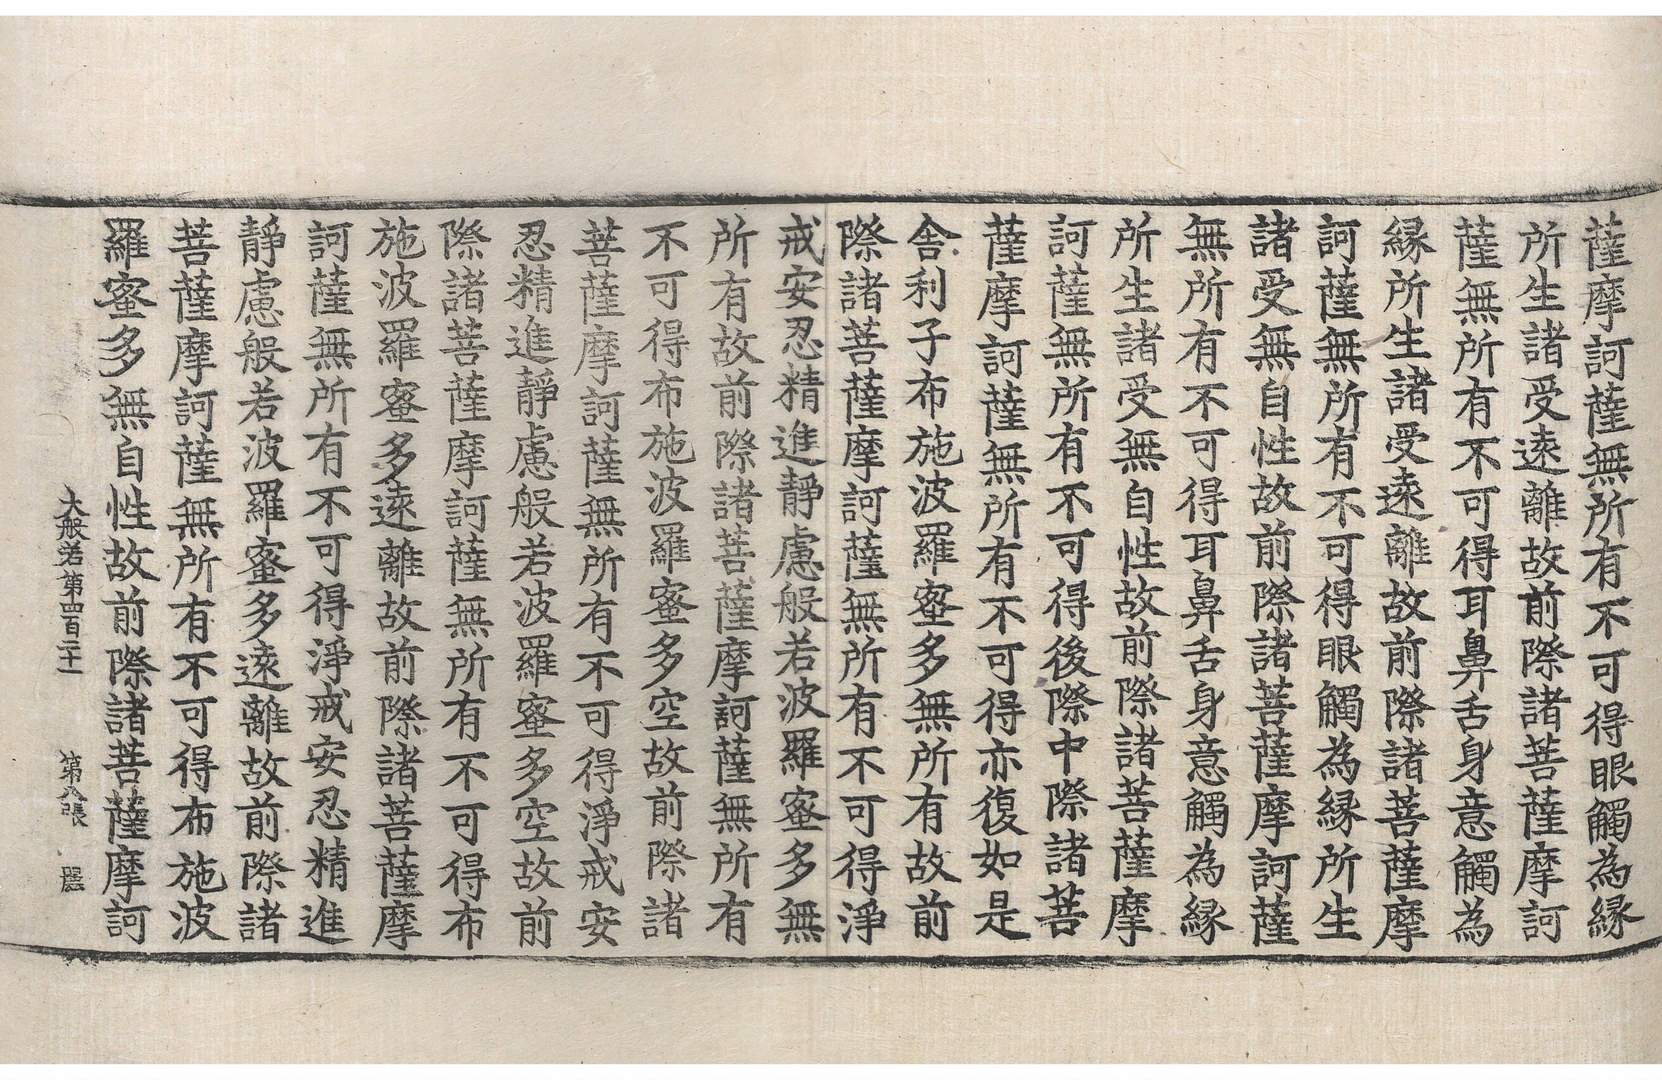 薩摩訶薩無所有不可得眼觸為縁
所生諸受遠離故前際諸菩薩摩訶
薩無所有不可得耳鼻舌身意觸為
縁所生諸受遠離故前際諸菩薩摩
訶薩無所有不可得眼觸為縁所生
諸受無自性故前際諸菩薩摩訶薩
無所有不可得耳鼻舌身意觸為縁
所生諸受無自性故前際諸菩薩摩
訶薩無所有不可得後際中際諸菩
薩摩訶薩無所有不可得亦復如是
舍利子布施波羅蜜多無所有故前
際諸菩薩摩訶薩無所有不可得淨
戒安忍精進靜慮般若波羅蜜多無
所有故前際諸菩薩摩訶薩無所有
不可得布施波羅蜜多空故前際諸
菩薩摩訶薩無所有不可得淨戒安
忍精進靜慮般若波羅蜜多空故前
際諸菩薩摩訶薩無所有不可得布
施波羅蜜多遠離故前際諸菩薩摩
訶薩無所有不可得淨戒安忍精進
靜慮般若波羅蜜多遠離故前際諸
菩薩摩訶薩無所有不可得布施波
羅蜜多無自性故前際諸菩薩摩訶
大般若第四百二十一 第八張 麗